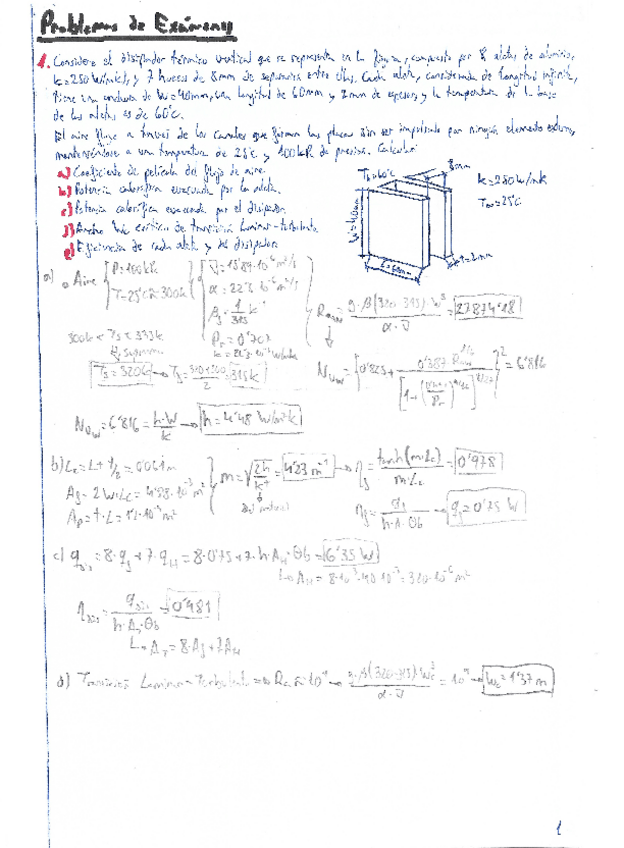 Problemas de Exámenes
1. Considere el disipador térmico vertical que se representa en la figura, compuesto por 8 aletas de aluminio,
k=250 W/mK), y 7 huecos de 8mm de separación entre ellas. Cada aleta, considerada de longitud infinita,
tiene una anchura de W=40mm, una longitud de 60mm y 2mm de espesor, y la temperatura de la base
de las aletas es de 60°C.
El aire fluye a través de los canales que forman las placas sin ser impulsado por ningún elemento externo,
manteniéndose a una temperatura de 25°C y 100kPa de presión. Calcular:
a) Coeficiente de película del flujo de aire.
b) Potencia calorífica evacuada por la aleta.
c) Potencia calorífica evacuada por el disipador.
d) Ancho Wc crítico de transición laminar-turbulento
e) Eficiencia de cada aleta y del disipador
Tb=60°C
8mm
k=250 W/mK
T∞=25°C
W=40mm
L=60mm
t=2mm
a) Aire
P=100kPa
T=25°C≈300k
α=22'5·10⁻⁶ m²/s
Pr=0'707
Ts=320k → Tf= =315k
Ra = g·β(320-315)·W³ / α·ν = 27874'18
Nu = [0'825 + 0'387·Ra^1/6 / [1+( /Pr)^9/16]^8/27]² = 6'816
Nu =6'816 = h·W/k → h=4'48 W/m²k
b) Lc=L+t/2=0'061m
Af=2W·Lc=4'88·10⁻³ m²
Ap=t·L=
m=√2h/kt = 4'23 m⁻¹ → ηf = tanh(m·Lc)/m·Lc = 0'978
ηf = qf/h·A·θb → qf=0'75 W
c) qdis=8·qf+7·qH=8·0'75+7·h·AH·θb=6'35 W
AH=8·10⁻³·40·10⁻³=320·10⁻⁶ m²
ηdis= qdis/h·AT·θb → 0'481
AT=8·Af+7AH
d) Transición Laminar-Turbulento → → g·β(320-315)·Wc³/α·ν = → Wc=1'37 m
1